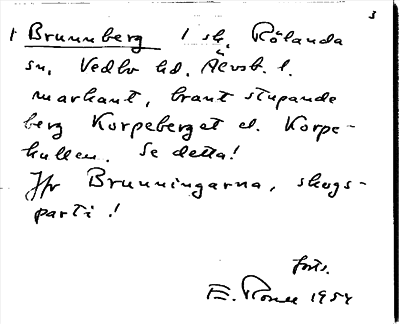 3
1 Brunnberg 1 sk. Rölanda
sn. Vedbo hd. Älvsb. l.
markant, brant stupande
berg Korpeberget el. Korpe-
kullen. Se detta!
Jfr Brunningarna, skogs-
parti!
forts.
E. 1954